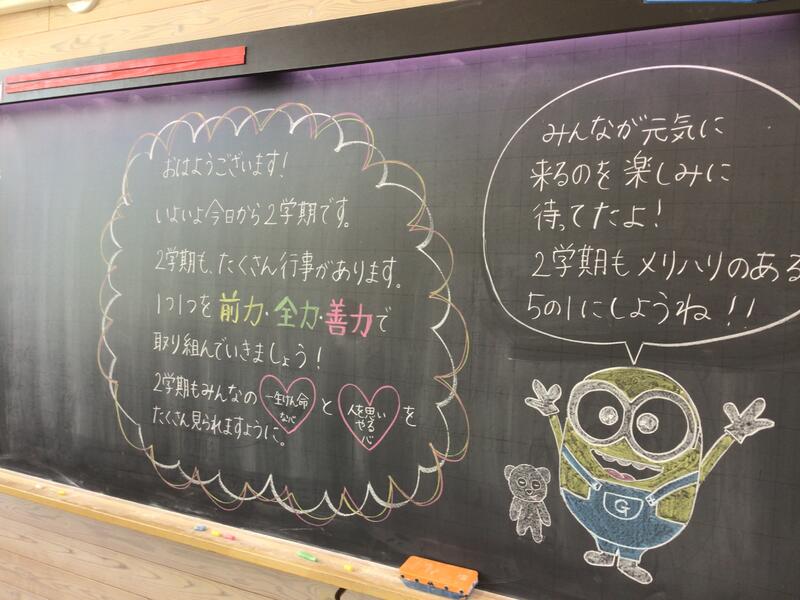 おはようございます!
いよいよ今日から2学期です。
2学期も、たくさん行事があります。
1つ1つを前力・全力・善力で
取り組んでいきましょう!
2学期もみんなの一生けん命な心と人を思いやる心を
たくさん見られますように。
みんなが元気に
来るのを楽しみに
待ってたよ!
2学期もメリハリのある
5の1にしようね!!
G